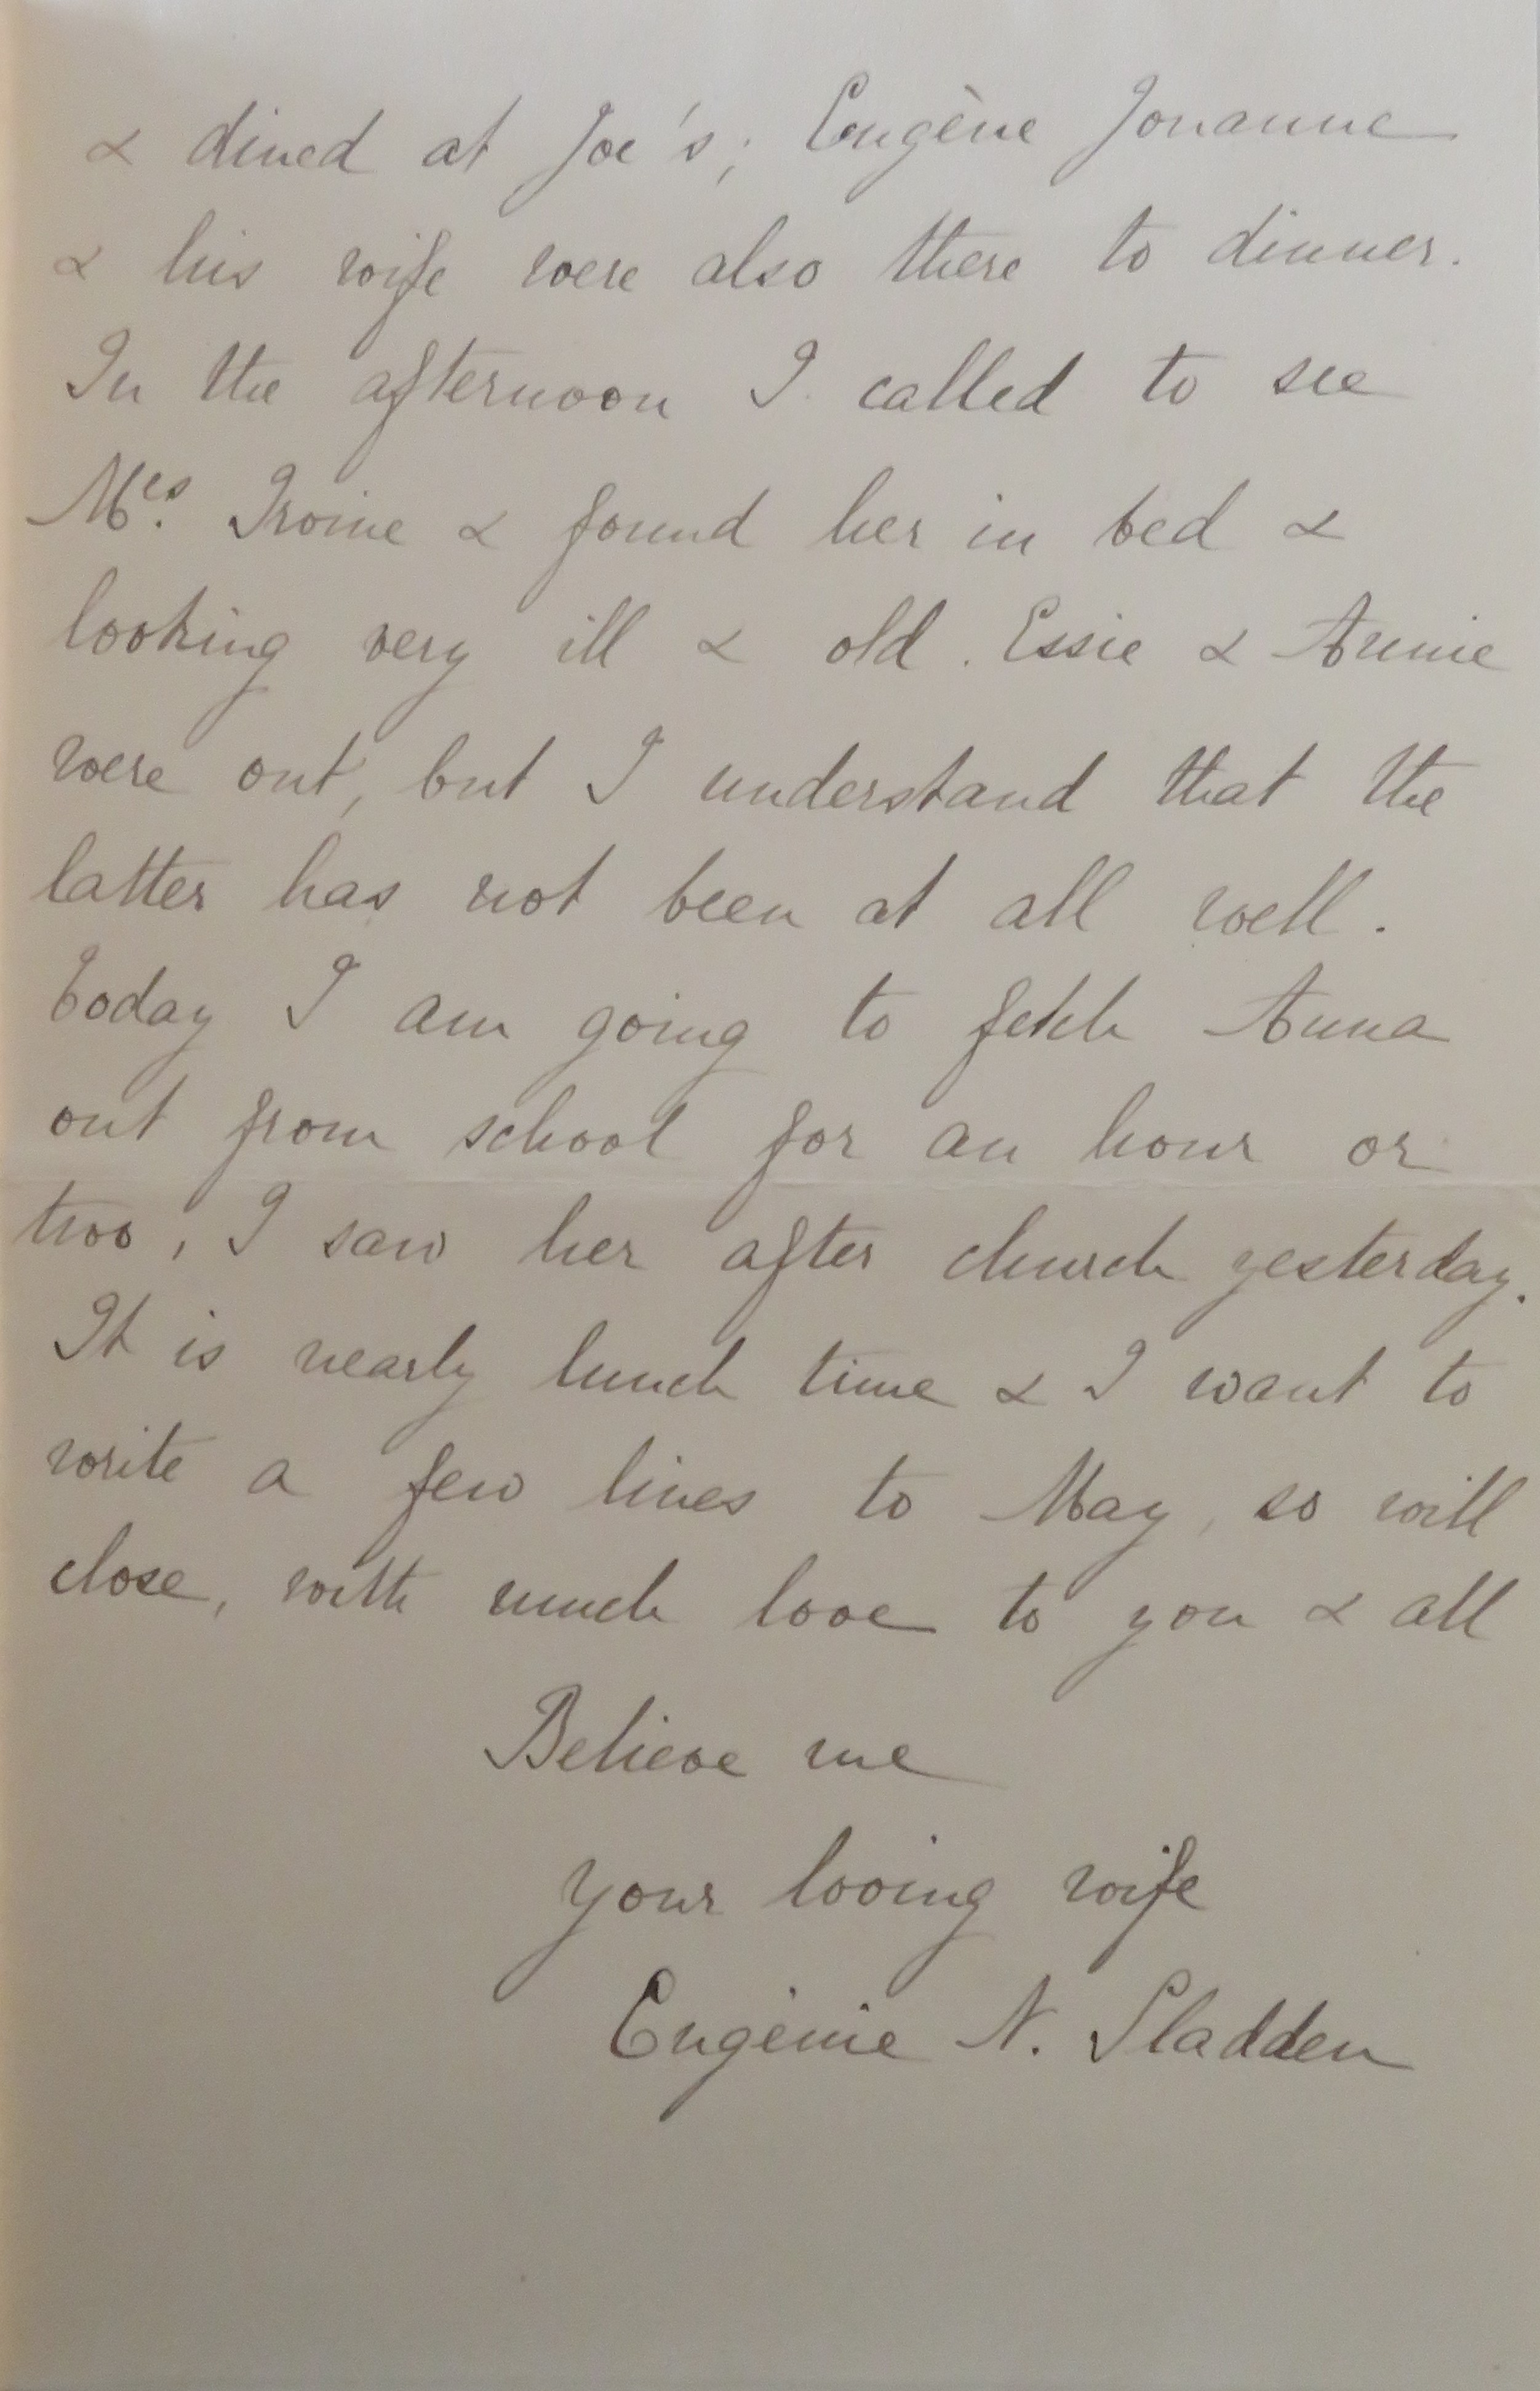 & dined at Joe's; Eugène Jouanne
& his wife were also there to dinner.
In the afternoon I called to see
Mrs. Irvine & found her in bed &
looking very ill & old. Essie & Annie
were out, but I understand that the
latter has not been at all well.
Today I am going to fetch Anna
out from school for an hour or
two, I saw her after church yesterday.
It is nearly lunch time & I want to
write a few lines to May, so will
close, with much love to you & all
Believe me
your loving wife
Eugénie N. Sladden